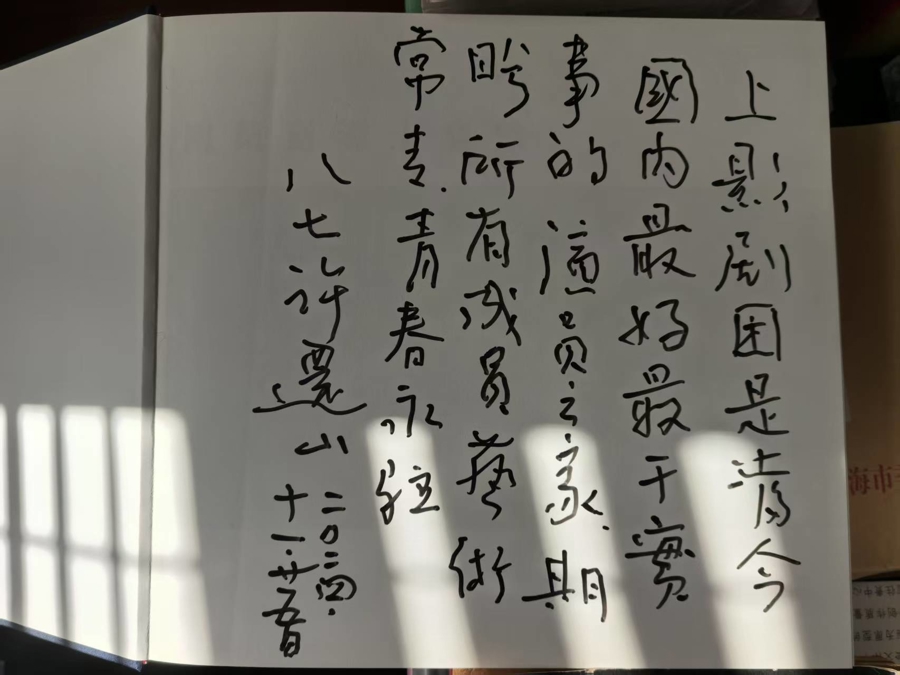 上影剧团是当今
國内最好最干實
事的演員之家.期
盼所有成員藝術
常青.青春永驻
八七許還山
二〇二四.
十一.廿五日
海市